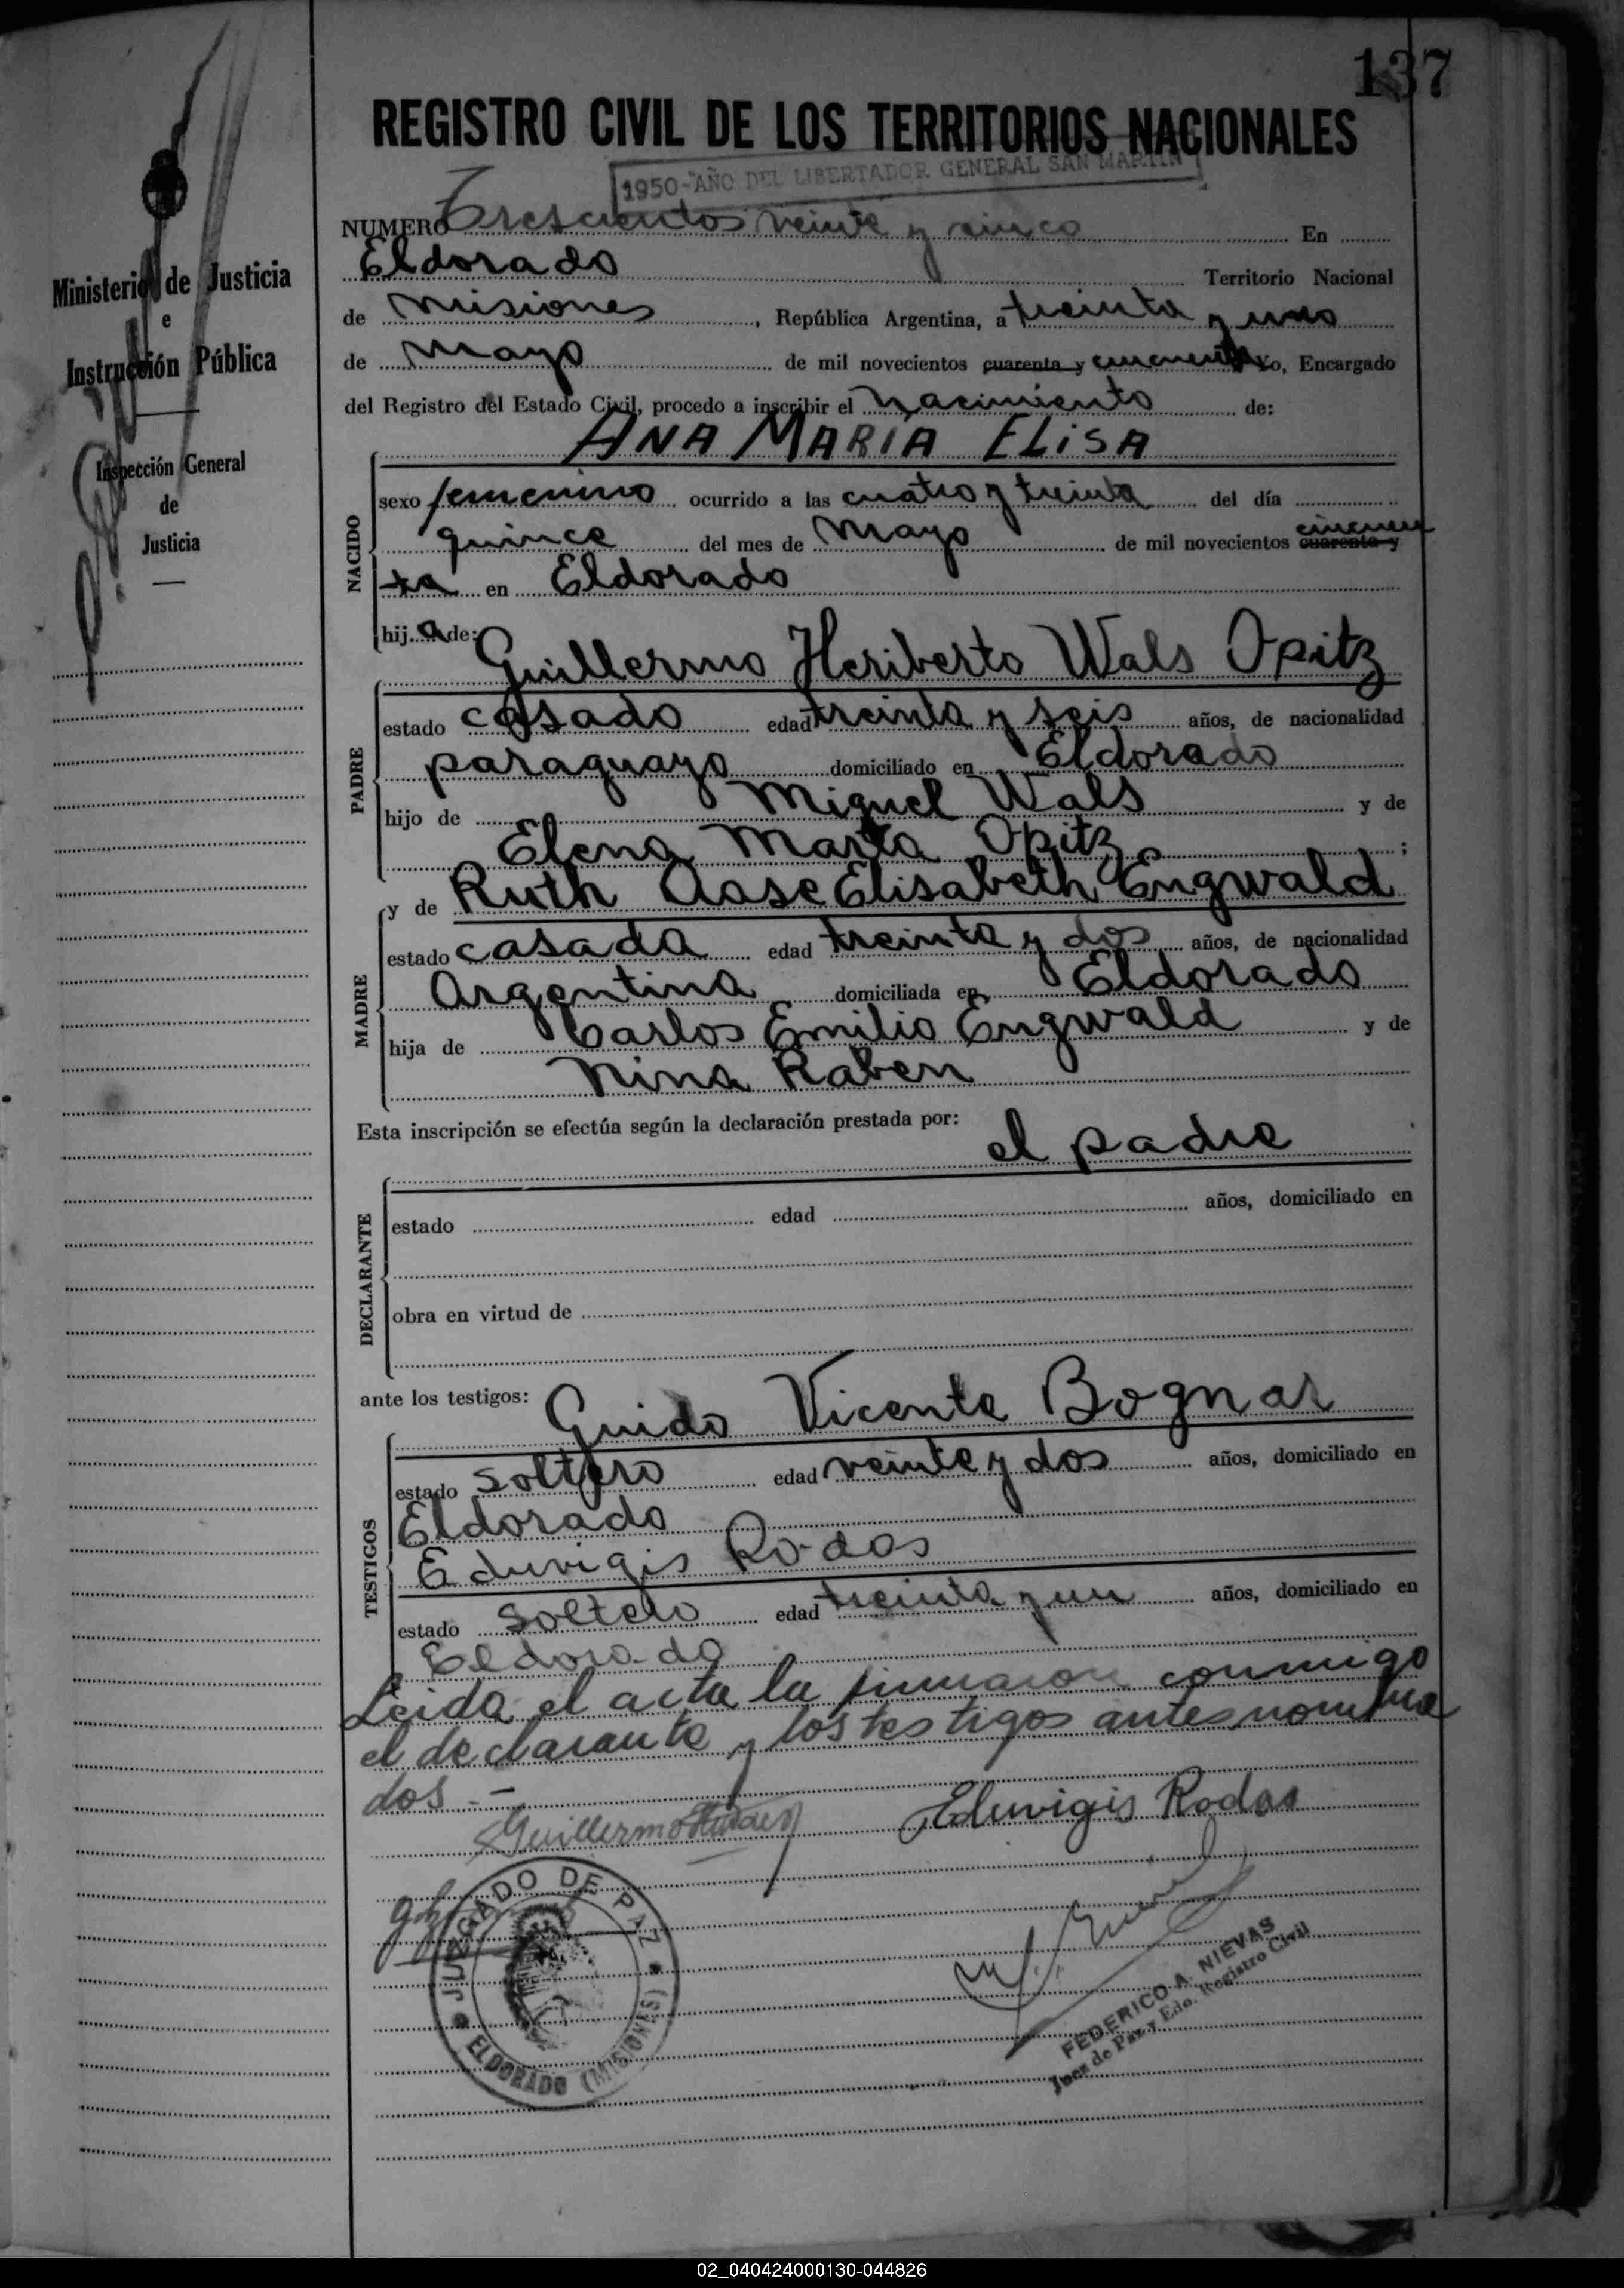 137
REGISTRO CIVIL DE LOS TERRITORIOS NACIONALES
1950-AÑO DEL LIBERTADOR GENERAL SAN MARTIN
NUMERO Trescientos veinte y cinco En
Eldorado Territorio Nacional
de Misiones, República Argentina, a treinta y uno
de Mayo de mil novecientos cuarenta y cincuenta Yo, Encargado
del Registro del Estado Civil, procedo a inscribir el Nacimiento de:
ANA MARÍA ELISA
NACIDO
sexo femenino ocurrido a las cuatro y treinta del día
quince del mes de Mayo de mil novecientos cuarenta y cincuen
ta en Eldorado
hija de:
Guillermo Heriberto Wals Opitz
PADRE
estado casado edad treinta y seis años, de nacionalidad
paraguayo domiciliado en Eldorado
hijo de Miguel Wals y de
Elena Marta Opitz;
MADRE
y de Ruth Aase Elisabeth Engwald
estado casada edad treinta y dos años, de nacionalidad
Argentina domiciliada en Eldorado
hija de Carlos Emilio Engwald y de
Nina Raben
Esta inscripción se efectúa según la declaración prestada por:
el padre
DECLARANTE
estado edad años, domiciliado en
obra en virtud de
ante los testigos:
Guido Vicente Bognar
TESTIGOS
estado soltero edad veinte y dos años, domiciliado en
Eldorado
Eduvigis Rodas
estado soltero edad treinta y un años, domiciliado en
Eldorado
Leida el acta la firmaron conmigo
el declarante y los testigos antes nombra
dos.-
Guillermo
Eduvigis Rodas
JUZGADO DE PAZ
ELDORADO (MISIONES)
FEDERICO A. NIEVAS
Juez de Paz y Edo. Registro Civil
Ministerio de Justicia
e
Instrucción Pública
Inspección General
de
Justicia
02_040424000130-044826